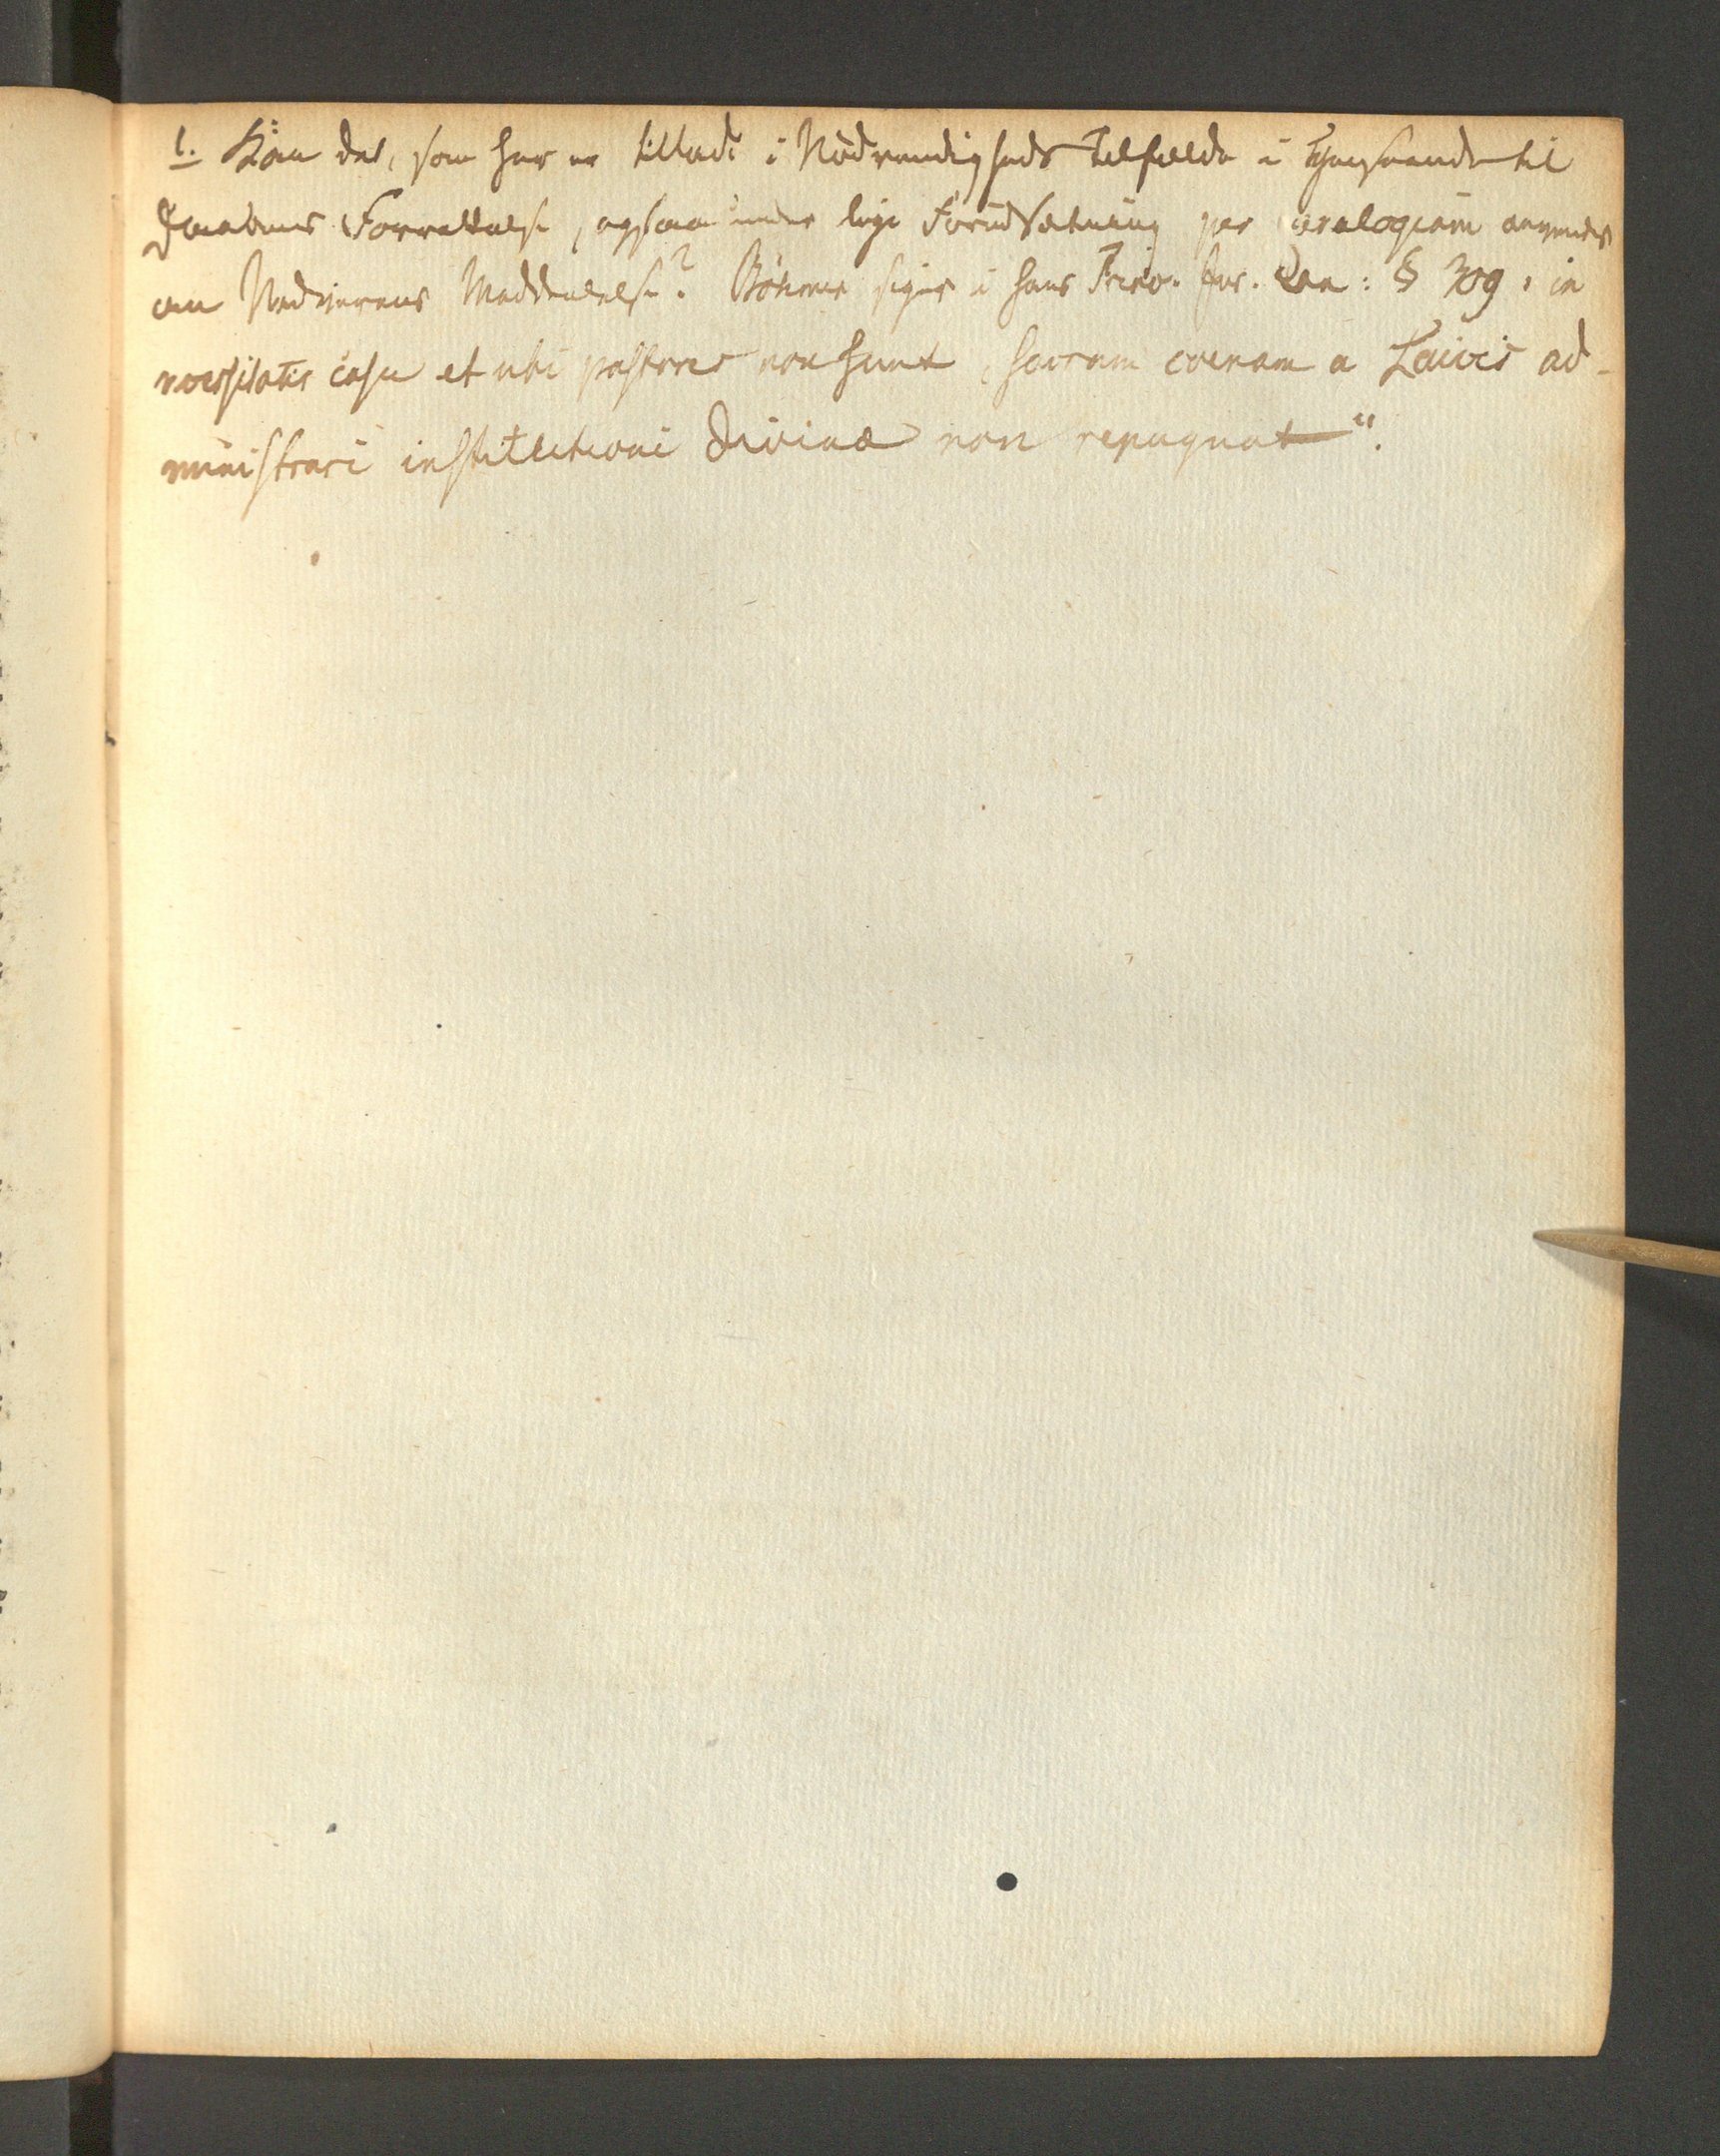 1. Kan det, som her er tilladt i Nødvendigheds Tilfælde i Henseende til
Daabens Forrettelse, ogsaa under lige Forudsætning per analogiam anvendes
om Nadverens Meddeelelse? Böhmer siger i hans Princ. Jur. Can: § 309, in
necessitatis casu et ubi pastores non sunt, sacram coenam a Laicis ad-
ministrari institutioni divinæ non repugnat“.